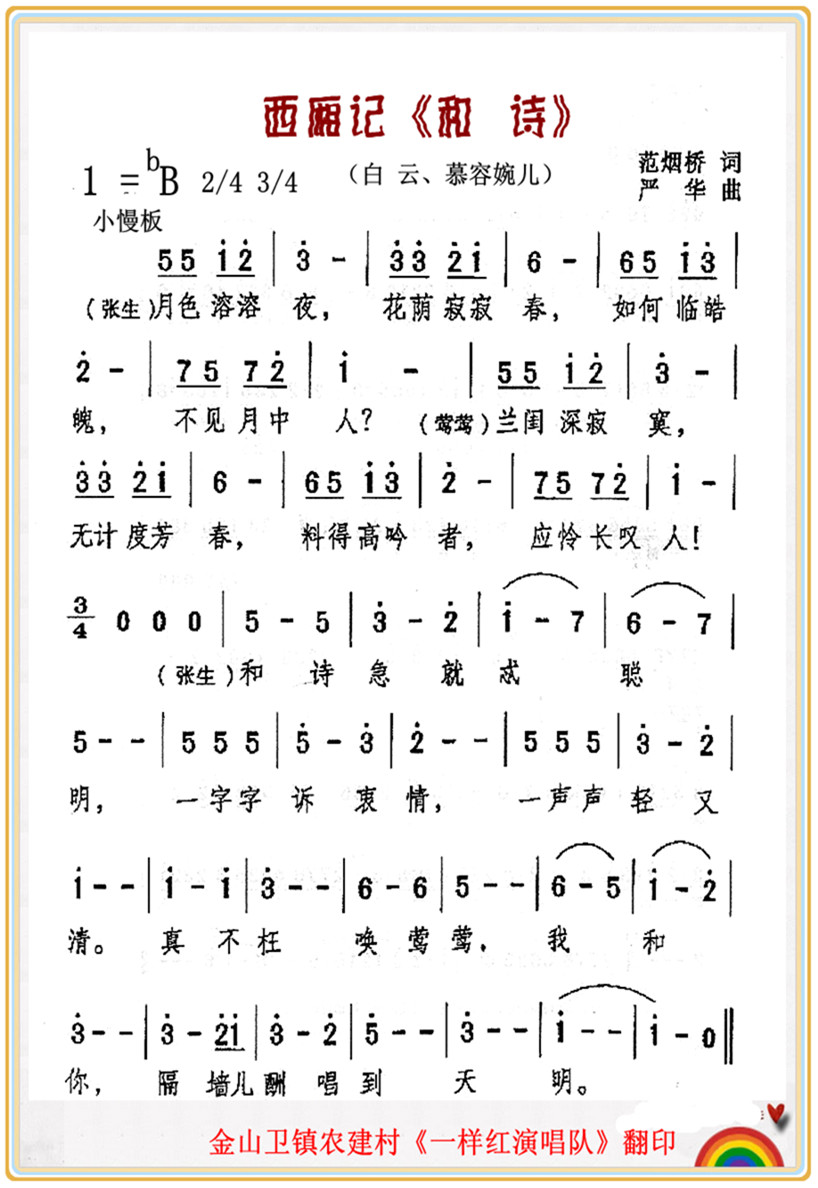 西厢记《和 诗》
1 = bB 2/4 3/4 （白 云、慕容婉儿）
范烟桥 词
严 华 曲
小慢板
5 5 1̇ 2̇ | 3̇ - | 3̇ 3̇ 2̇ 1̇ | 6 - | 6 5 1̇ 3̇ |
（张生）月色溶溶 夜， 花荫寂寂 春， 如何临皓
2̇ - | 7 5 7 2̇ | 1̇ - | 5 5 1̇ 2̇ | 3̇ - |
魄， 不见月中 人？（莺莺）兰闺深寂 寞，
3̇ 3̇ 2̇ 1̇ | 6 - | 6 5 1̇ 3̇ | 2̇ - | 7 5 7 2̇ | 1̇ - |
无计度芳 春， 料得高吟 者， 应怜长叹 人！
3/4 0 0 0 | 5 - 5 | 3̇ - 2̇ | 1̇ - 7 | 6 - 7 |
（张生）和 诗 急 就 忒 聪
5 - - | 5 5 5 | 5̇ - 3̇ | 2̇ - - | 5 5 5 | 3̇ - 2̇ |
明， 一字字 诉 衷 情， 一声声 轻 又
1̇ - - | 1̇ - 1̇ | 3̇ - - | 6 - 6 | 5 - - | 6 - 5 | 1̇ - 2̇ |
清。 真 不 枉 唤 莺 莺， 我 和
3̇ - - | 3̇ - 2̇1̇ | 3̇ - 2̇ | 5̇ - - | 3̇ - - | 1̇ - - | 1̇ - 0 ‖
你， 隔 墙儿 酬 唱 到 天 明。
金山卫镇农建村《一样红演唱队》翻印